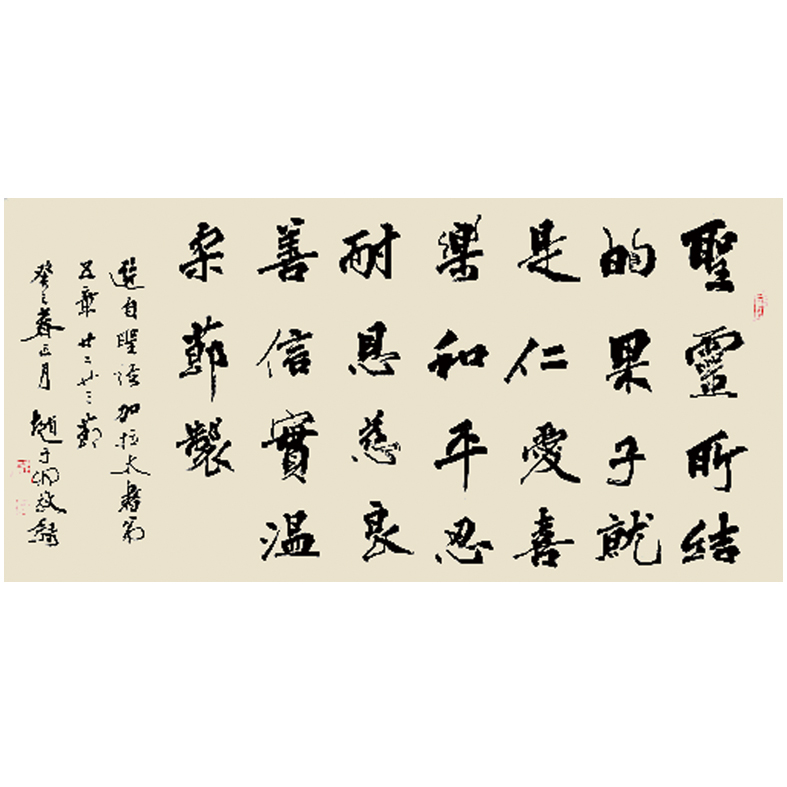 聖靈所結
的果子就
是仁愛喜
樂和平忍
耐恩慈良
善信實溫
柔節製
選自聖經加拉太書第
五章廿二廿三節
春正月 趙 敬錄